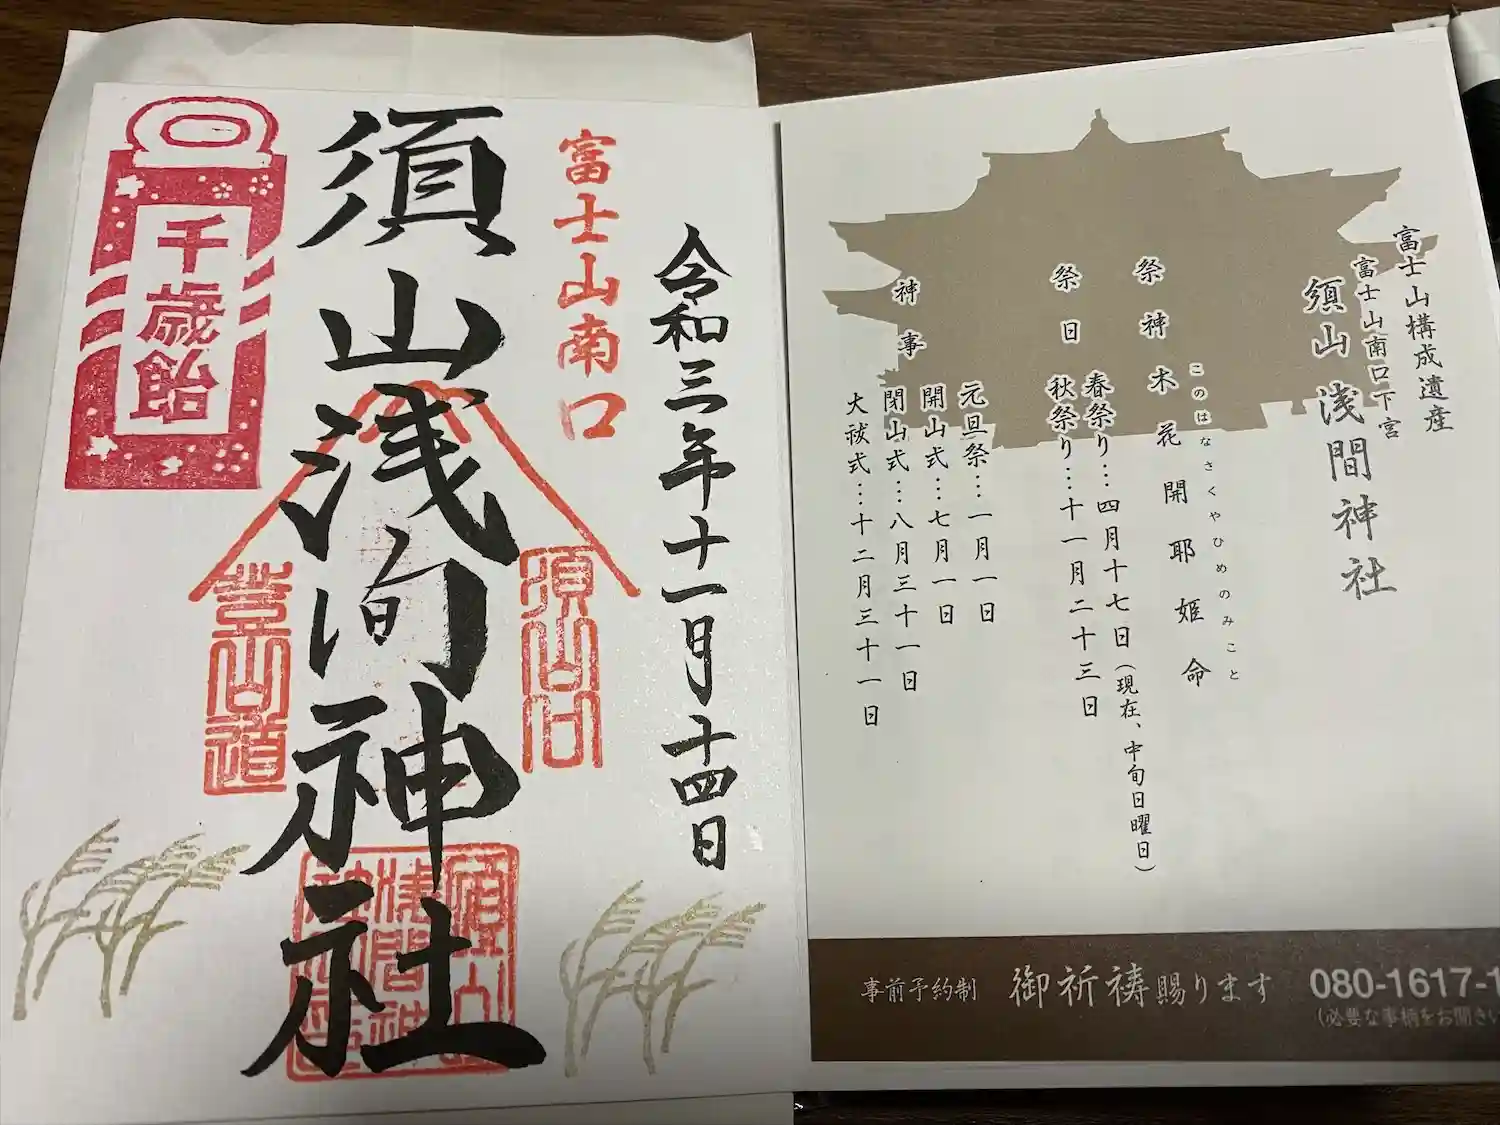 令和三年十一月十四日
富士山南口
須山浅间神社
須山口
登山道
千歳飴
富士山構成遺産
富士山南口下宮
須山浅間神社
このはなさくやひめのみこと
祭神 木花開耶姫命
祭日 春祭り…四月十七日(現在、中旬日曜日)
秋祭り…十一月二十三日
神事 元旦祭…一月一日
開山式…七月一日
閉山式…八月三十一日
大祓式…十二月三十一日
事前予約制 御祈祷賜ります 080-1617-1
(必要な事柄をお聞きい